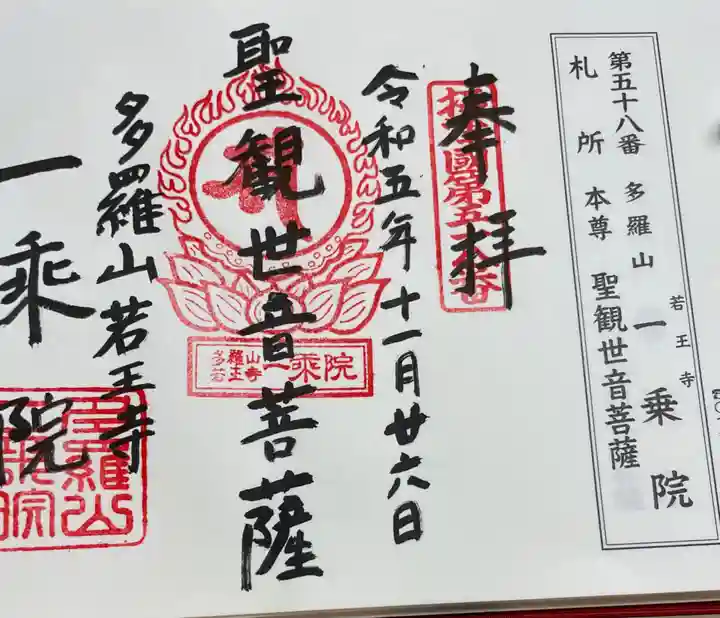 第五十八番 多羅山 若王寺 一乗院
札所本尊 聖観世音菩薩
奉拝
令和五年十一月廿六日
聖観世音菩薩
多羅山若王寺
一乘院
多羅山
若王寺
一乘院
多羅山